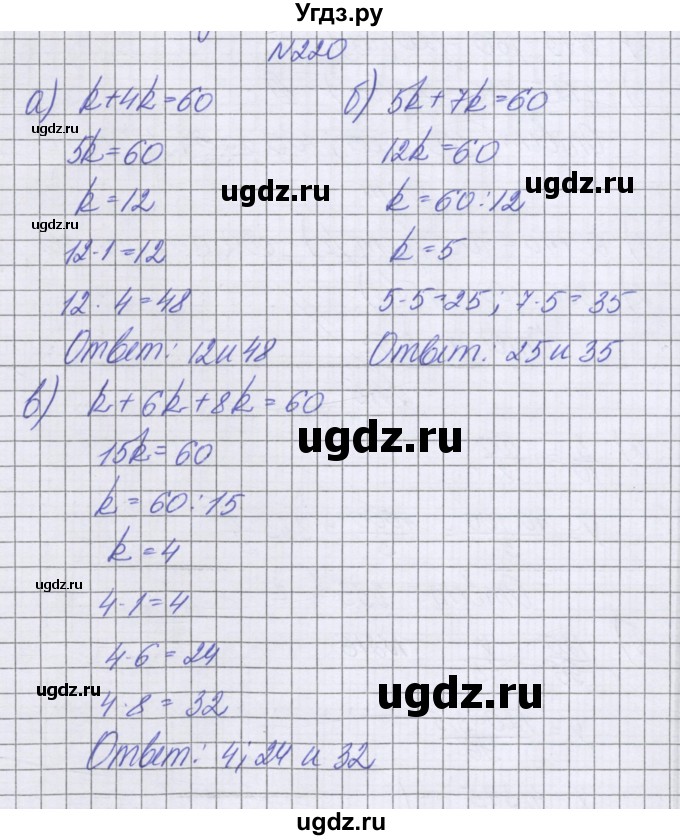 Угдз.ру
N220
а) k+4k=60
5k=60
k=12
12·1=12
12·4=48
Ответ: 12 и 48
б) 5k+7k=60
12k=60
k=60:12
k=5
5·5=25; 7·5=35
Ответ: 25 и 35
в) k+6k+8k=60
15k=60
k=60:15
k=4
4·1=4
4·6=24
4·8=32
Ответ: 4; 24 и 32
ugdz.ru
ugdz.ru
ugdz.ru
ugdz.ru
ugdz.ru
ugdz.ru
ugdz.ru
ugdz.ru
ugdz.ru
ugdz.ru
ugdz.ru